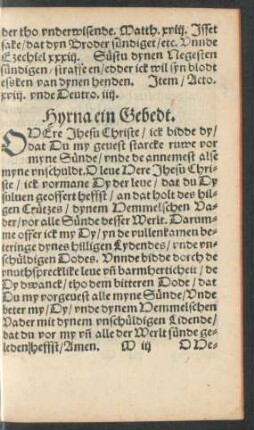 der tho vnderwisende. Matth. xviij. Isset
sake/dat dyn Broder sündiget/etc. Vnnde
Ezechiel xxxiij. Süstu dynen Negesten
sündigen/straffe en/edder ick wil syn blodt
esken van dynen henden. Item/Acto.
xviij. vnde Deutro. iiij.
Hyrna ein Gebedt.
OEre Jhesu Christe/ick bidde dy/
dat Du my geuest starcke ruwe vor
myne Sünde/vnde de annemest alse
myne vnschuldt. O leue Here Jhesu Chri-
ste/ick vormane Dy der leue/dat du Dy
süluen geoffert heffst/an dat holt des hil-
gen Crützes/dynem Hemmelschen Va-
der/vor alle Sünde desser Werlt. Darum-
me offer ick my Dy/yn de vullenkamen be-
teringe dynes hilligen Lydendes/vnde vn-
schüldigen Dodes. Vnnde bidde dorch de
vnuthsprecklike leue vñ barmherticheit/de
Dy dwanck/tho dem bitteren Dode/dat
Du my vorgeuest alle myne Sünde/Vnde
beter my/Dy/vnde dynem Hemmelschen
Vader mit dynem vnschüldigen Lidende/
dat du vor my vñ alle der Werlt sünde ge-
ledenheffst/Amen. M iij O He-